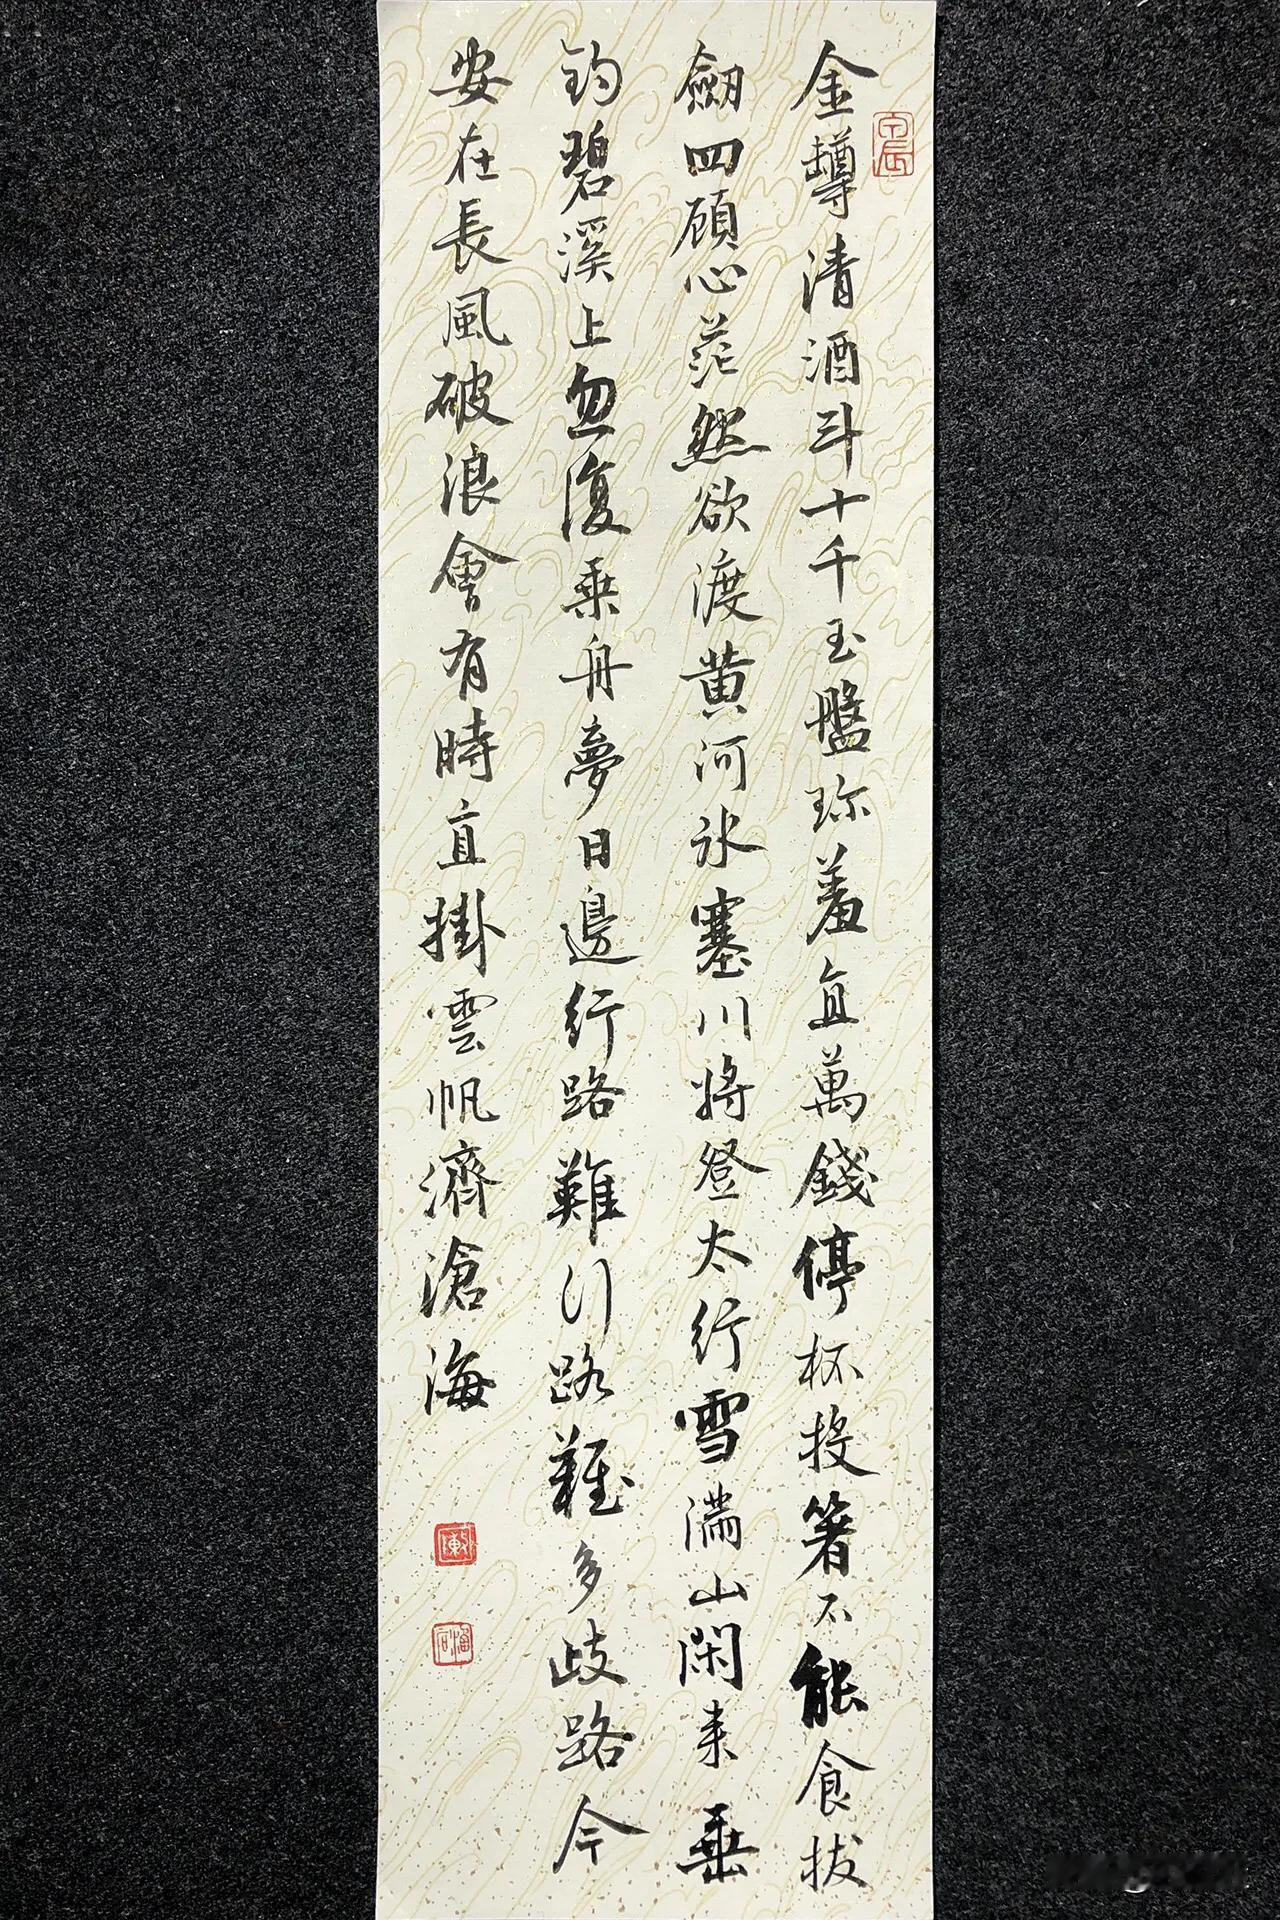 金罇清酒斗十千玉盤珎羞直萬錢停杯投箸不能食拔
劒四顧心茫然欲渡黄河冰塞川将登太行雪滿山閑来垂
釣碧溪上忽復乗舟夢日邊行路難行路難多歧路今
安在長風破浪會有時直掛雲帆濟滄海